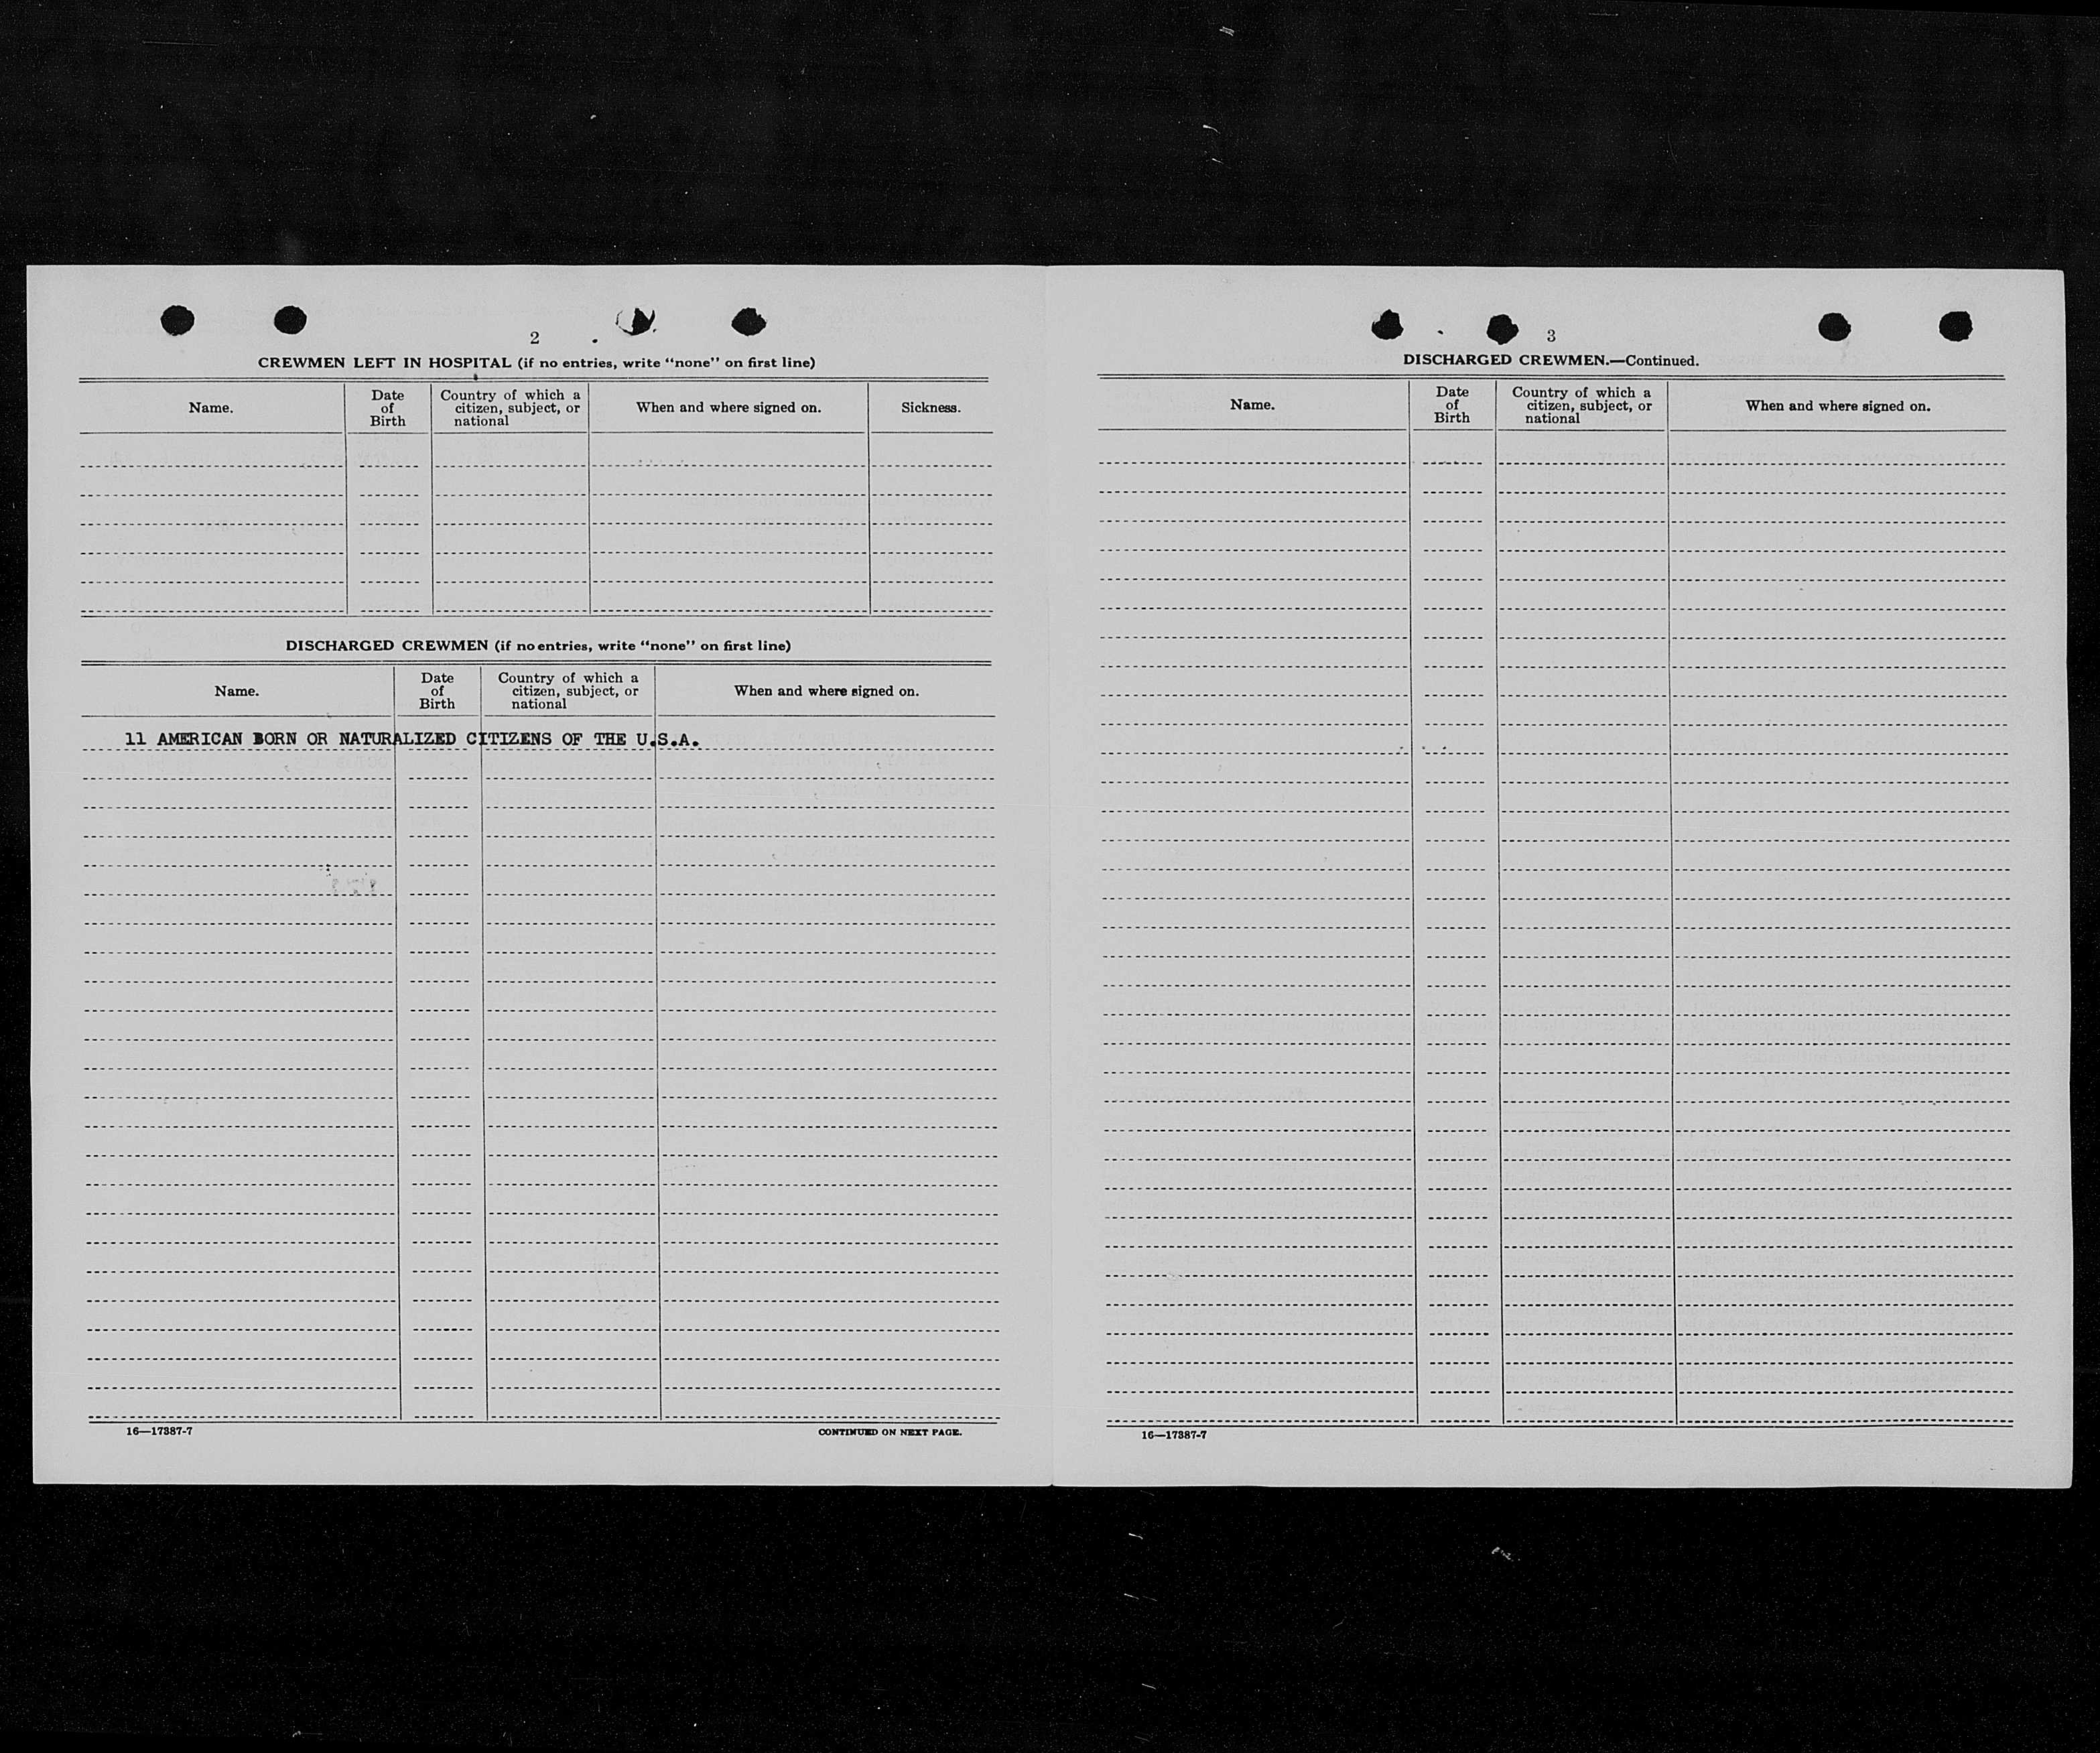 2
CREWMEN LEFT IN HOSPITAL (if no entries, write “none” on first line)
Name.
Date
of
Birth
Country of which a
citizen, subject, or
national
When and where signed on.
Sickness.
DISCHARGED CREWMEN (if no entries, write “none” on first line)
Name.
Date
of
Birth
Country of which a
citizen, subject, or
national
When and where signed on.
11 AMERICAN BORN OR NATURALIZED CITIZENS OF THE U.S.A.
16—17387-7
CONTINUED ON NEXT PAGE.
3
DISCHARGED CREWMEN.—Continued.
Name.
Date
of
Birth
Country of which a
citizen, subject, or
national
When and where signed on.
16—17387-7